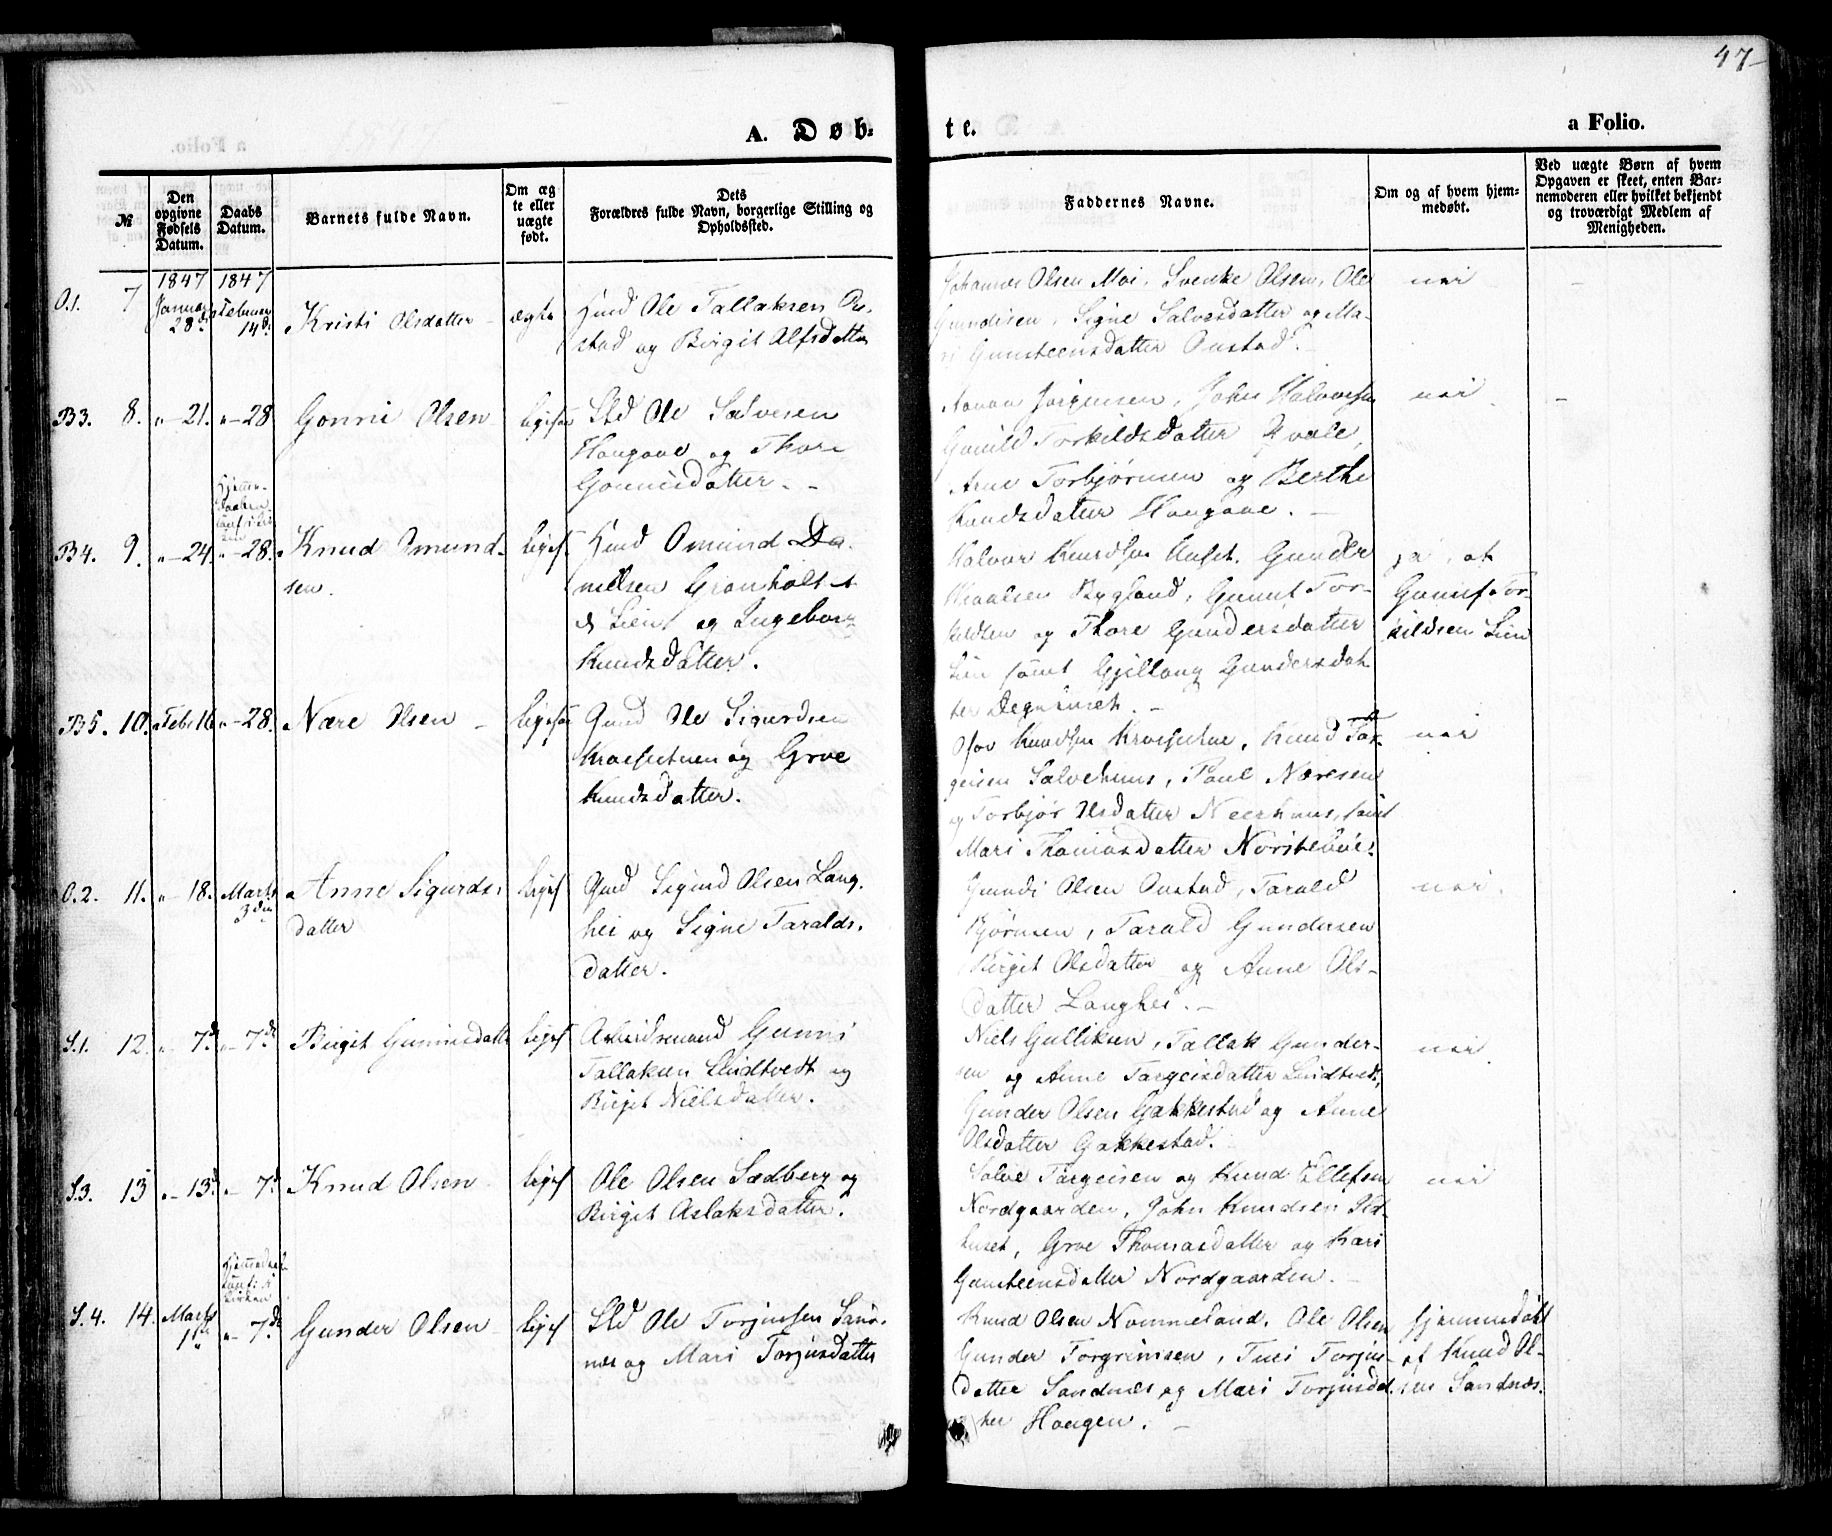 47
A. Døb-
te.
a Folio.
№
Den opgivne Fødsels Datum.
Daabs Datum.
Barnets fulde Navn.
Om ægte eller uægte født.
Dets
Forældres fulde Navn, borgerlige Stilling og
Opholdssted.
Faddernes Navne.
Om og af hvem hjem-
medøbt.
Ved uægte Børn af hvem
Opgaven er skeet, enten Bar-
nemoderen eller hvilket bekjendt
og troværdigt Medlem af
Menigheden.
O.1. 7 1847 Januar 28de 1847 Februar 14de Kristi Olsdatter ægte
Gmd Ole Tallaksen On-
stad og Birgit Alfsdatter
Johannes Olsen Moi, Svenke Olsen, Ole
Gundersen, Signe Salvesdatter og Ma-
ri Gunsteensdatter Onstad. -
nei -
B3. 8. "-21. "-28 Gonni Olsen ligesaa
Sld Ole Salvesen
Haugaae og Thore
Gonnisdatter. -
Jørgensen, John Halvorsen
Gunild Torkildsdatter Qvale,
Arne Torbjørnsen og Berthe
Knudsdatter Haugaae. -
nei -
B4. 9. "-24. "-28. Knud Omund-
sen. ligesf
Gmd Omund Da-
nielsen Granholt
Lien og Ingeborg
Knudsdatter.
Halvor Knudsen Gunder
Bygland, Gunuf Tor-
kildsen og Thore Gundersdatter
Lien samt Gjellaug Gundersdat-
ter
ja, af
Gunuf Tor-
kildsen Lien
B5. 10. Febr 16 "-28. Nære Olsen - ligesaa
Gmd Ole Sigurdsen
og Groe
Knudsdatter.
Knudsen Knud Tar-
geisen Salvehuus, Paul Næresen
og Torbjør Olsdatter Neerhuus, samt
Mari Thomasdatter
nei
O.2. 11. "-18. Marts 3die Anne Sigurds-
datter ligesf
Gmd Sigurd Olsen Lang-
hei og Signe Taralds-
datter.
Gundi Olsen Onstad, Tarald
Bjørnsen, Tarald Gundersen
Birgit Olsdatter og Anne Ols-
datter Langhei. -
nei.
S.1. 12. "-7de "-7de Birgit Gunnisdatter ligesf
Arbeidsmand Gunni
Tallaksen Lindtvedt og
Birgit Nielsdatter.
Niels Gulliksen, Tallak Gunder-
sen og Anne Targeisdatter Lindtvedt,
Gunder Olsen Gakkestad og Anne
Olsdatter Gakkestad.
nei
S.3. 13 "-13de "-7de Knud Olsen ligesf
Ole Olsen Sædberg og
Birgit Aslaksdatter.
Salve Targeisen og Knud Ellefsen
Nordgaarden, John Knudsen
Groe Thomasdatter og Kari
Gunsteensdatter Nordgaarden. -
nei
S.4. 14. Marts 1ste "-7de Gunder Olsen ligesf
Sld Ole Torjussen Sand-
næs og Mari Torjusdatter
Knud Olsen Nommeland. Ole Olsen
Gunder Torgrimsen, Turi Torjus-
datter Sandnæs og Mari Torjusdat-
ter Haugen. -
hjemmedøbt
af Knud Ol-
sen Sandnæs.